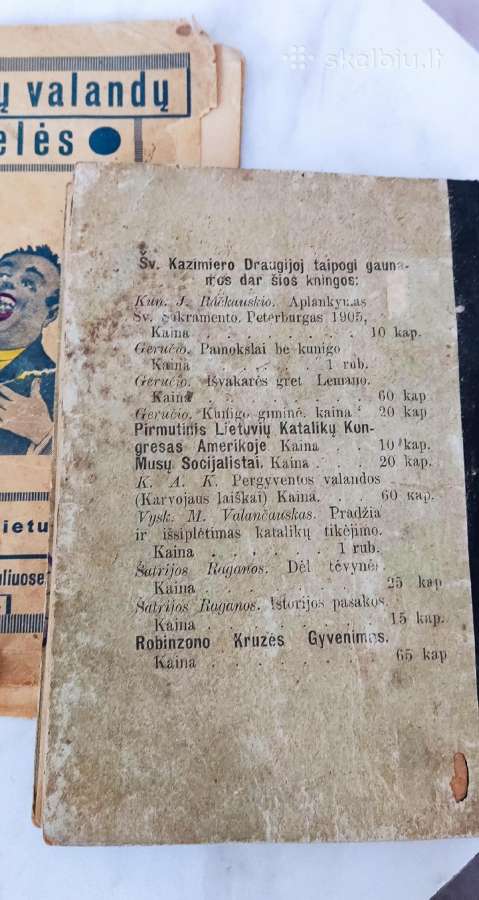 skelbiu.lt
ų valandų
elės
ietu
uliuose
Šv. Kazimiero Draugijoj taipogi gauna-
mos dar šios kningos:
Kun. J. Ráčkauskio. Aplankymas
Šv. Sakramento. Peterburgas 1905,
Kaina . . . . . . . 10 kap.
Geručio. Pamokslai be kunigo
Kaina . . . . . . 1 rub.
Geručio. Išvakarės gret Lemano.
Kaina . . . . . . 60 kap
Geručio. Kunigo giminė. kaina 20 kap
Pirmutinis Lietuvių Katalikų Kon-
gresas Amerikoje Kaina . . 10 kap.
Musų Socijalistai. Kaina . . . 20 kap.
K. A. K. Pergyventos valandos
(Karvojaus laiškai) Kaina. . . 60 кар.
Vysk. M. Valančauskas. Pradžia
ir išsiplėtimas katalikų tikėjimo.
Kaina . . . . . . 1 rub.
Šatrijos Raganos. Dėl tėvynės
Kaina . . . . . . 25 kap
Šatrijos Raganos. Istorijos pasakos.
Kaina . . . . . . 15 kap.
Robinzono Kruzės Gyvenimas.
Kaina . . . . . . 65 kap